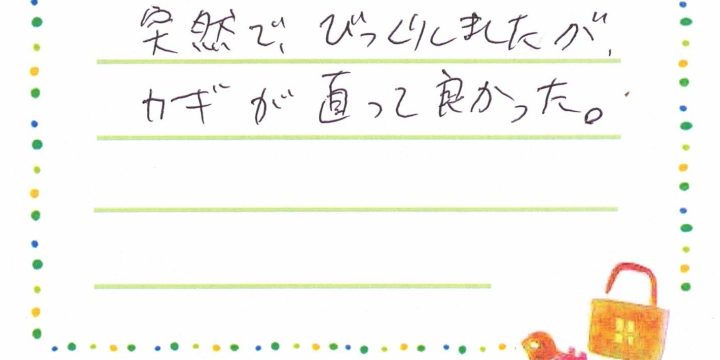 突然で、びっくりしましたが、
カギが直って良かった。